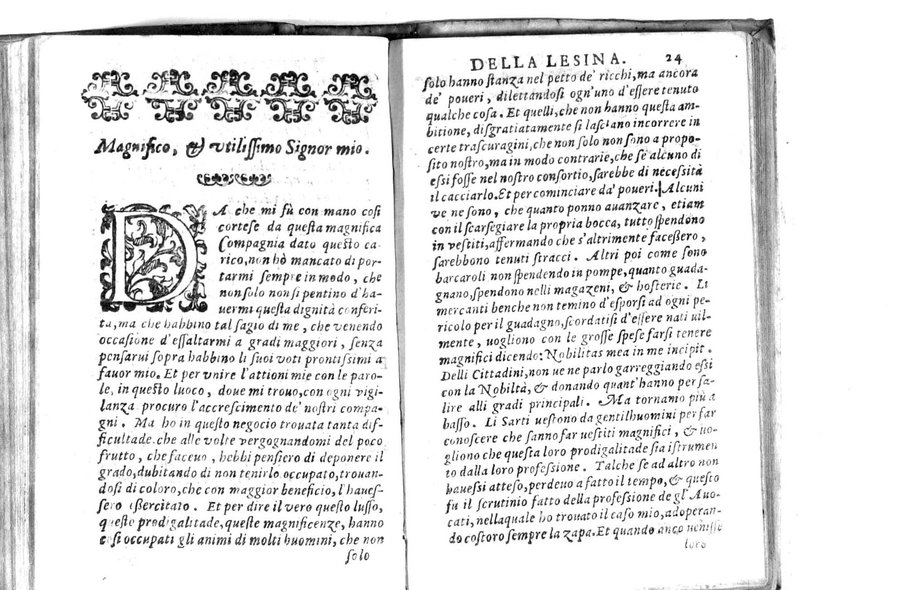 Magnifico, & vtilissimo Signor mio.
DA che mi fù con mano così
cortese da questa magnifica
Compagnia dato questo ca-
rico, non hò mancato di por-
tarmi sempre in modo, che
non solo non si pentino d'ha-
uermi questa dignità conferi-
ta, ma che habbino tal sagio di me, che venendo
occasione d'essaltarmi a gradi maggiori, senza
pensarui sopra habbino li suoi voti prontissimi a
fauor mio. Et per vnire l'attioni mie con le paro-
le, in questo luoco, doue mi trouo, con ogni vigi-
lanza procuro l'accrescimento de' nostri compa-
gni. Ma ho in questo negocio trouata tanta dif-
ficultade. che alle volte vergognandomi del poco
frutto, che faceuo, hebbi pensiero di deponere il
grado, dubitando di non tenirlo occupato, trouan-
dosi di coloro, che con maggior beneficio, l'haues-
sero essercitato. Et per dire il vero questo lusso,
queste prodigalitade, queste magnificenze, hanno
così occupati gli animi di molti huomini, che non
solo
DELLA LESINA. 24
solo hanno stanza nel petto de' ricchi, ma ancora
de' poueri, dilettandosi ogn'uno d'essere tenuto
qualche cosa. Et quelli, che non hanno questa am-
bitione, disgratiatamente si lasciano incorrere in
certe trascuragini, che non solo non sono a propo-
sito nostro, ma in modo contrarie, che se alcuno di
essi fosse nel nostro consortio, sarebbe di necessità
il cacciarlo. Et per cominciare da' poueri. Alcuni
ve ne sono, che quanto ponno auanzare, etiam
con il scarsegiare la propria bocca, tutto spendono
in vestiti, affermando che s'altrimente facessero,
sarebbono tenuti stracci. Altri poi come sono
barcaroli non spendendo in pompe, quanto guada-
gnano, spendono nelli magazeni, & hosterie. Li
mercanti benche non temino d'esporsi ad ogni pe-
ricolo per il guadagno, scordatisi d'essere nati uil-
mente, uogliono con le grosse spese farsi tenere
magnifici dicendo: Nobilitas mea in me incipit.
Delli Cittadini, non ue ne parlo garreggiando essi
con la Nobiltà, & donando quant'hanno per sa-
lire alli gradi principali. Ma tornamo più a
basso. Li Sarti uestono da gentilhuomini per far
conoscere che sanno far uestiti magnifici, & uo-
gliono che questa loro prodigalitade sia istrumen
to dalla loro professione. Talche se ad altro non
hauessi atteso, perdeuo a fatto il tempo, & questo
fu il scrutinio fatto della professione de gl'Auo-
cati, nellaquale ho trouato il caso mio, adoperan-
do costoro sempre la zapa. Et quando anco uenisse
loro